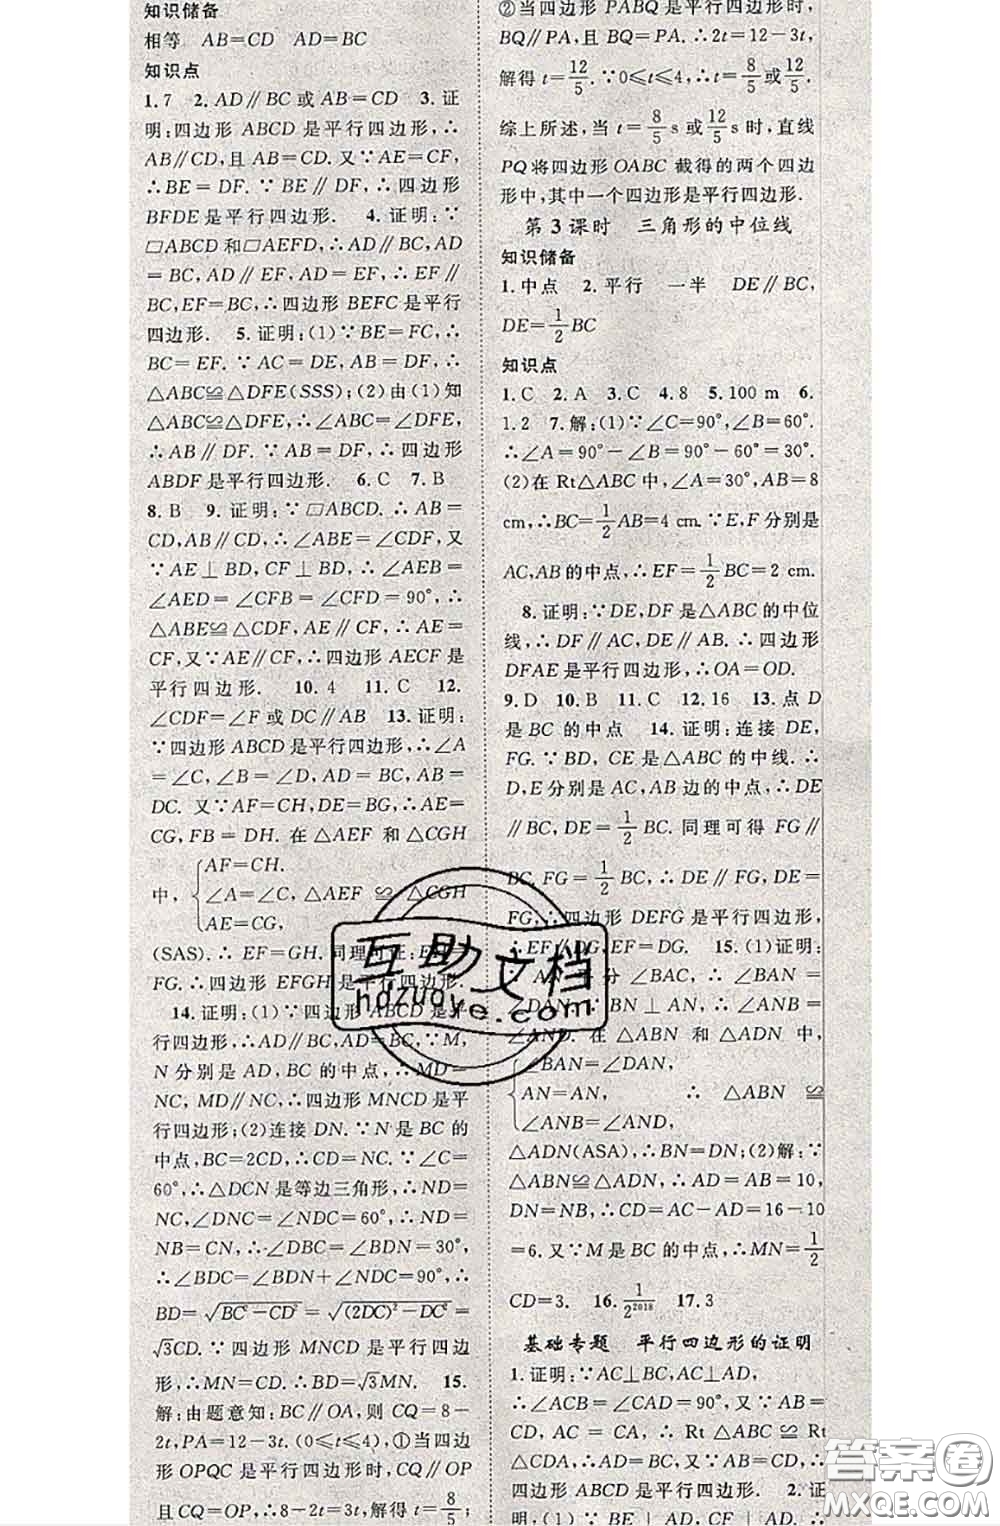 知识储备
相等　AB=CD　AD=BC
知识点
1.7　2.AD∥BC或AB=CD　3.证
明:四边形 ABCD 是平行四边形,∴
AB∥CD,且 AB=CD.又∵AE=CF,
∴BE=DF.∵BE∥DF,∴四边形
BFDE是平行四边形.　4.证明:∵
▱ABCD和▱AEFD,∴AD∥BC,AD
=BC,AD∥EF,AD=EF,∴EF∥
BC,EF=BC,∴四边形 BEFC 是平行
四边形.　5.证明:(1)∵BE=FC,∴
BC=EF.∵AC=DE,AB=DF,∴
△ABC≌△DFE(SSS);(2)由(1)知
△ABC≌△DFE,∴∠ABC=∠DFE,
∴AB∥DF.∵AB=DF,∴四边形
ABDF是平行四边形.　6.C　7.B
8.B　9.证明:∵▱ABCD.∴AB=
CD,AB∥CD,∴∠ABE=∠CDF,又
∵AE⊥BD,CF⊥BD,∴∠AEB=
∠AED=∠CFD=∠CFB=90°,∴
△ABE≌△CDF,AE∥CF,∴AE=
CF,又∵AE∥CF,∴四边形 AECF 是
平行四边形.　10.4　11.C　12.
∠CDF=∠F 或 DC∥AB　13.证明:
∵四边形 ABCD 是平行四边形,∴∠A
=∠C,∠B=∠D,AD=BC,AB=
DC.又∵AF=CH,DE=BG,∴AE=
CG,FB=DH.在△AEF 和△CGH
中,{AF=CH. ∠A=∠C, AE=CG, △AEF≌△CGH
(SAS).∴EF=GH.同理可证:EH=
FG.∴四边形 EFGH 是平行四边形.
14.证明:(1)∵四边形 ABCD 是平
行四边形,∴AD∥BC,AD=BC,∵M,
N分别是 AD,BC 的中点,∴MD=
NC,MD∥NC,∴四边形 MNCD 是平
行四边形;(2)连接 DN.∵N 是 BC 的
中点,BC=2CD,∴CD=NC.∵∠C=
60°,∴△DCN 是等边三角形,∴ND=
NC,∠DNC=∠NDC=60°,∴ND=
NB=CN,∴∠DBC=∠BDN=30°,
∴∠BDC=∠BDN+∠NDC=90°,∴
BD=√(BC²-CD²)=√((2DC)²-DC²)=
√3CD.∵四边形 MNCD 是平行四边
形,∴MN=CD.∴BD=√3MN.　15.
解:由题意知:BC∥OA,则 CQ=8-
2t,PA=12-3t.(0≤t≤4),①当四边
形 OPQC 是平行四边形时,CQ∥OP
且 CQ=OP,∴8-2t=3t,解得 t=8/5;
②当四边形 PABQ 是平行四边形时,
BQ∥PA,且 BQ=PA.∴2t=12-3t,
解得 t=12/5.∵0≤t≤4,∴t=8/5或12/5.
综上所述,当 t=8/5s 或12/5s 时,直线
PQ将四边形 OABC 截得的两个四边
形中,其中一个四边形是平行四边形.
第3课时　三角形的中位线
知识储备
1.中点　2.平行　一半　DE∥BC,
DE=1/2BC
知识点
1.C　2.A　3.C　4.8　5.100 m　6.
1.2　7.解:(1)∵∠C=90°,∠B=60°.
∴∠A=90°-∠B=90°-60°=30°.
(2)在 Rt△ABC 中,∠A=30°,AB=8
cm,∴BC=1/2AB=4 cm.∵E,F分别是
AC,AB的中点,∴EF=1/2BC=2 cm.
8.证明:∵DE,DF是△ABC的中位
线,∴DF∥AC,DE∥AB.∴四边形
DFAE是平行四边形,∴OA=OD.
9.D　10.B　11.C　12.16　13.点 D
是 BC 的中点　14.证明:连接 DE,
FG.∵BD, CE 是△ABC 的中线.∴
D,E分别是 AC,AB 边的中点,∴DE
∥BC,DE=1/2BC.同理可得 FG∥
BC.FG=1/2BC,∴DE∥FG,DE=
FG,∴四边形 DEFG 是平行四边形,
∴EF∥DG,EF=DG.　15.(1)证明:
∵AN 平分∠BAC,∴∠BAN=
∠DAN.∵BN⊥AN,∴∠ANB=
∠AND.在△ABN 和△ADN 中,
{∠BAN=∠DAN, AN=AN, ∠ANB=∠AND, ∴△ABN≌
△ADN(ASA),∴BN=DN;(2)解:∵
△ABN≌△ADN,∴AD=AB=10,
DN=NB,∴CD=AC-AD=16-10
=6.又∵M是BC的中点,∴MN=1/2
CD=3.　16.1/2²⁰¹⁸　17.3
基础专题　平行四边形的证明
1.证明:∵AC⊥BC,AC⊥AD,
∴∠ACB=∠CAD=90°,又∵AB=
CD,AC=CA,∴Rt△ABC≌Rt
△CDA,∴AD=BC.∵AB=CD,∴
四边形 ABCD 是平行四边形.　2.证
明:(1)∵BE⊥AD,CF⊥AD,∴
互助文档
hdzuoye.com
答案圈
MXQE.COM